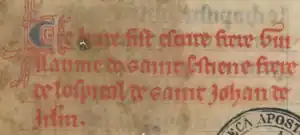 Ce liure fist escrire frere Gui
llaume de saint estiene frere
de lospital de saint Johan de
Jrlm.
ECA APOST